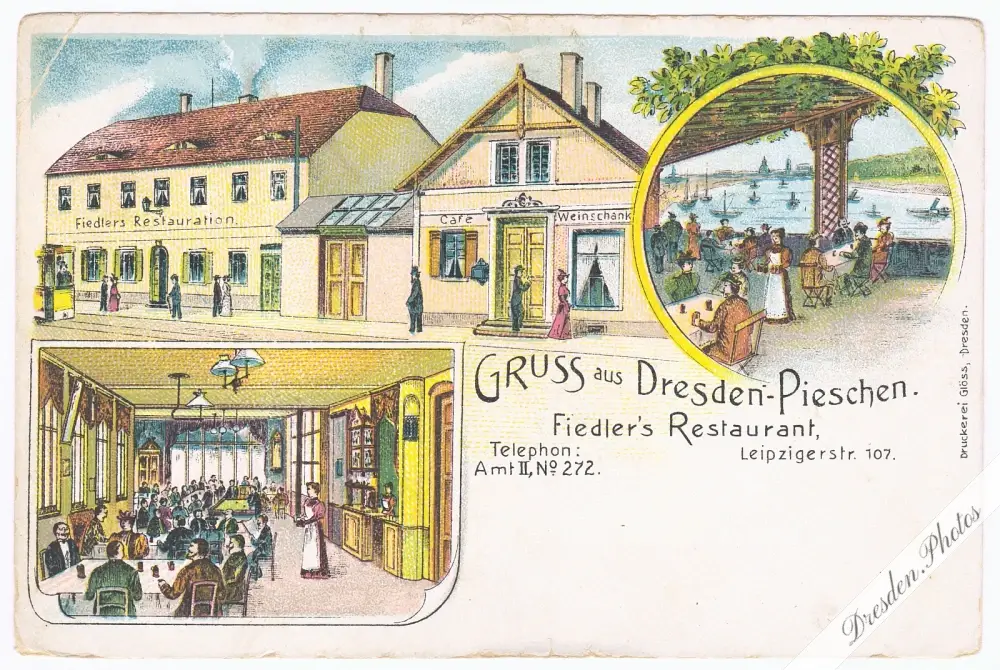 Fiedlers Restauration.
Café
Weinschank
GRUSS aus Dresden-Pieschen.
Fiedler's Restaurant,
Telephon:
Amt II, No 272.
Leipzigerstr. 107.
Druckerei Glöss, Dresden.
Dresden.Photos